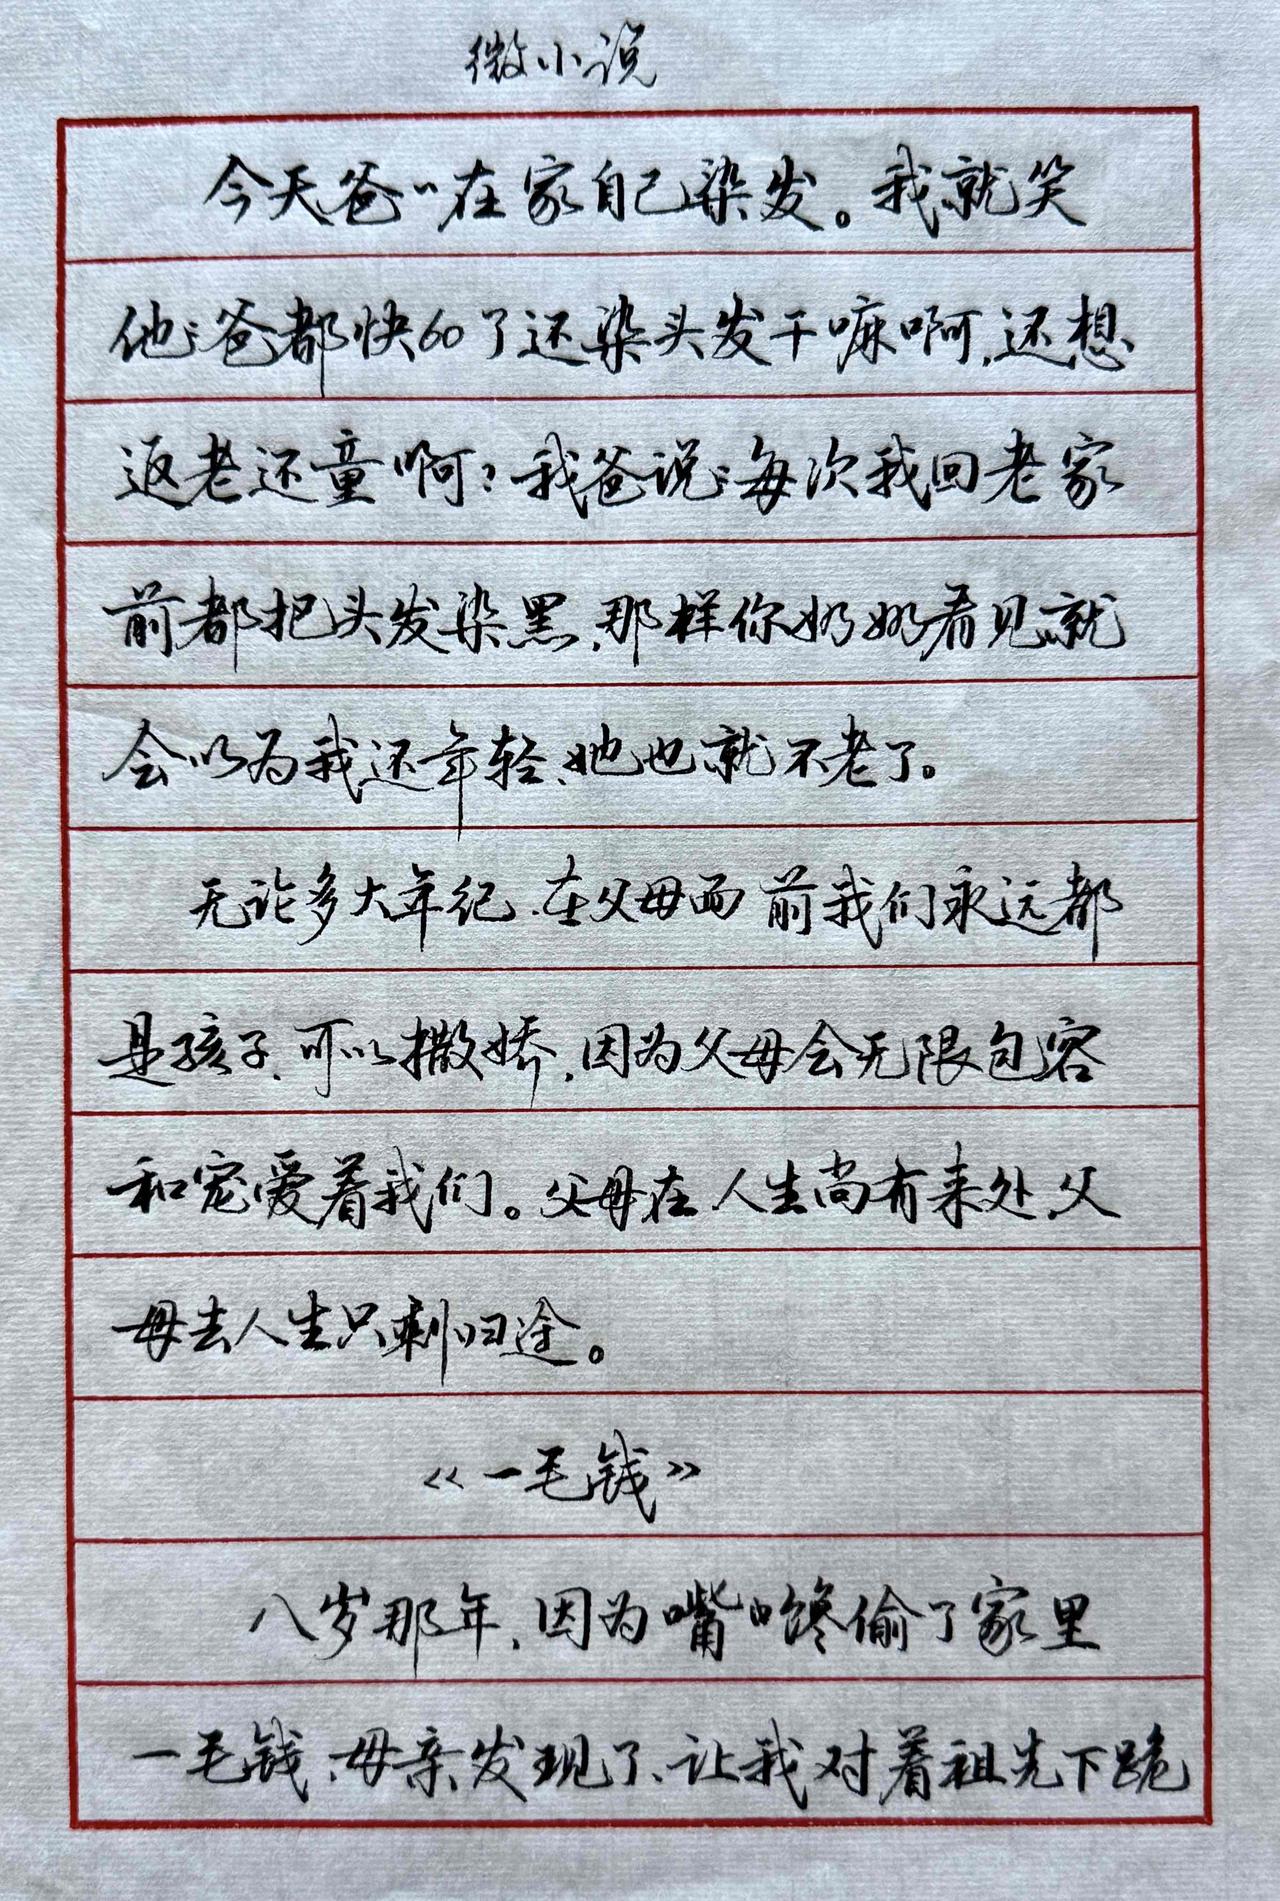 微小说
今天爸〃在家自己染发。我就笑
他:爸都快60了还染头发干嘛啊,还想
返老还童啊?我爸说:每次我回老家
前都把头发染黑,那样你奶奶看见就
会以为我还年轻、她也就不老了。
无论多大年纪、在父母面前我们永远都
是孩子、可以撒娇,因为父母会无限包容
和宠爱着我们。父母在人生尚有来处,父
母去人生只剩归途。
《一毛钱》
八岁那年,因为嘴馋偷了家里
一毛钱、母亲发现了、让我对着祖先下跪